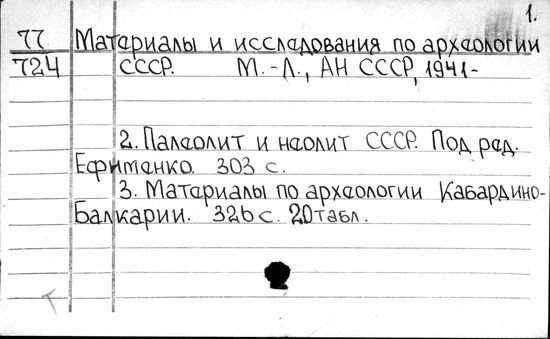 1.
77 Материалы и исследования по археологии
724 СССР. М.-Л., АН СССР, 1941-
2. Палеолит и неолит СССР. Под ред.
Ефименко. 303 с.
3. Материалы по археологии Кабардино-
Балкарии. 326 с. 20 табл.